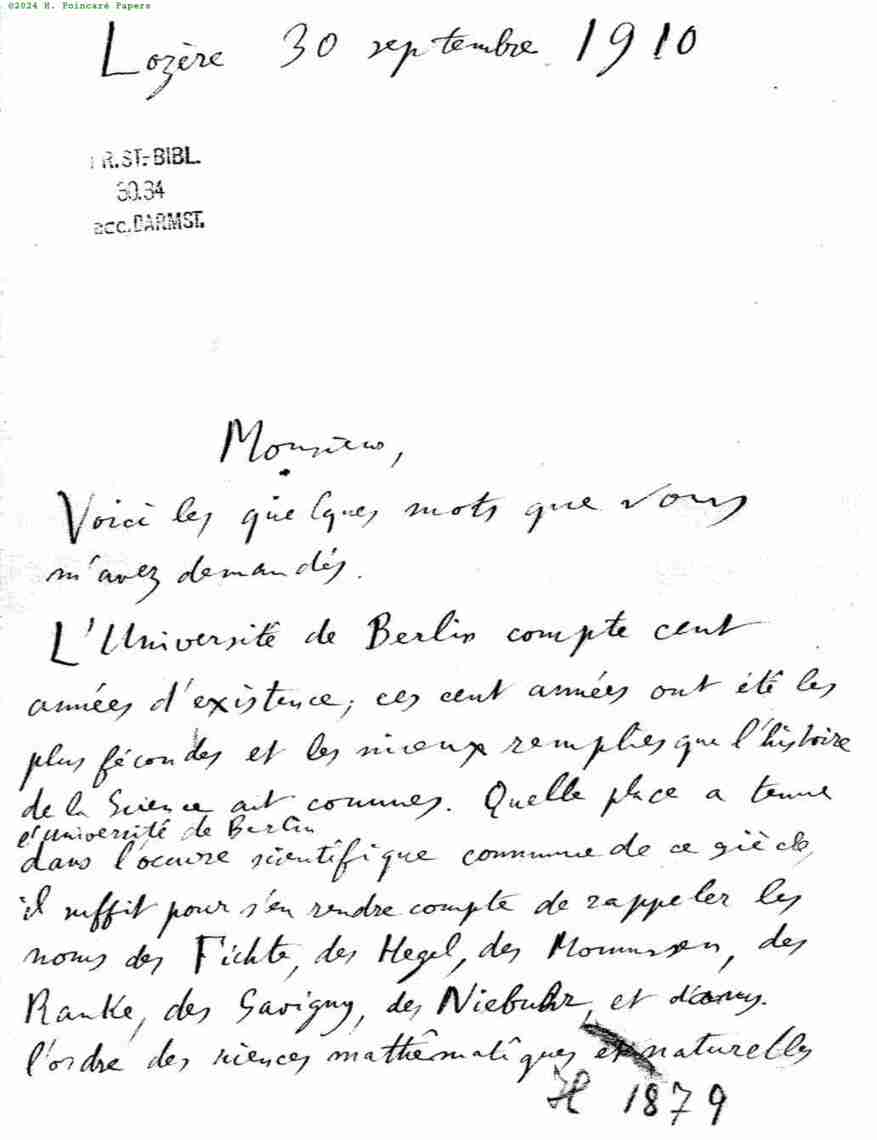 ©2024 H. Poincaré Papers
Lozère 30 septembre 1910
R.ST.-BIBL.
30.34
acc.DARMST.
Monsieur,
Voici les quelques mots que vous
m'avez demandés.
L'Université de Berlin compte cent
années d'existence; ces cent années ont été les
plus fécondes et les mieux remplies que l'histoire
de la Science ait connues. Quelle place a tenue
l'Université de Berlin
dans l'oeuvre scientifique commune de ce siècle,
il suffit pour s'en rendre compte de rappeler les
noms des Fichte, des Hegel, des Mommsen, des
Ranke, des Savigny, des Niebuhr, et dans
l'ordre des sciences mathématiques et naturelles
H 1879